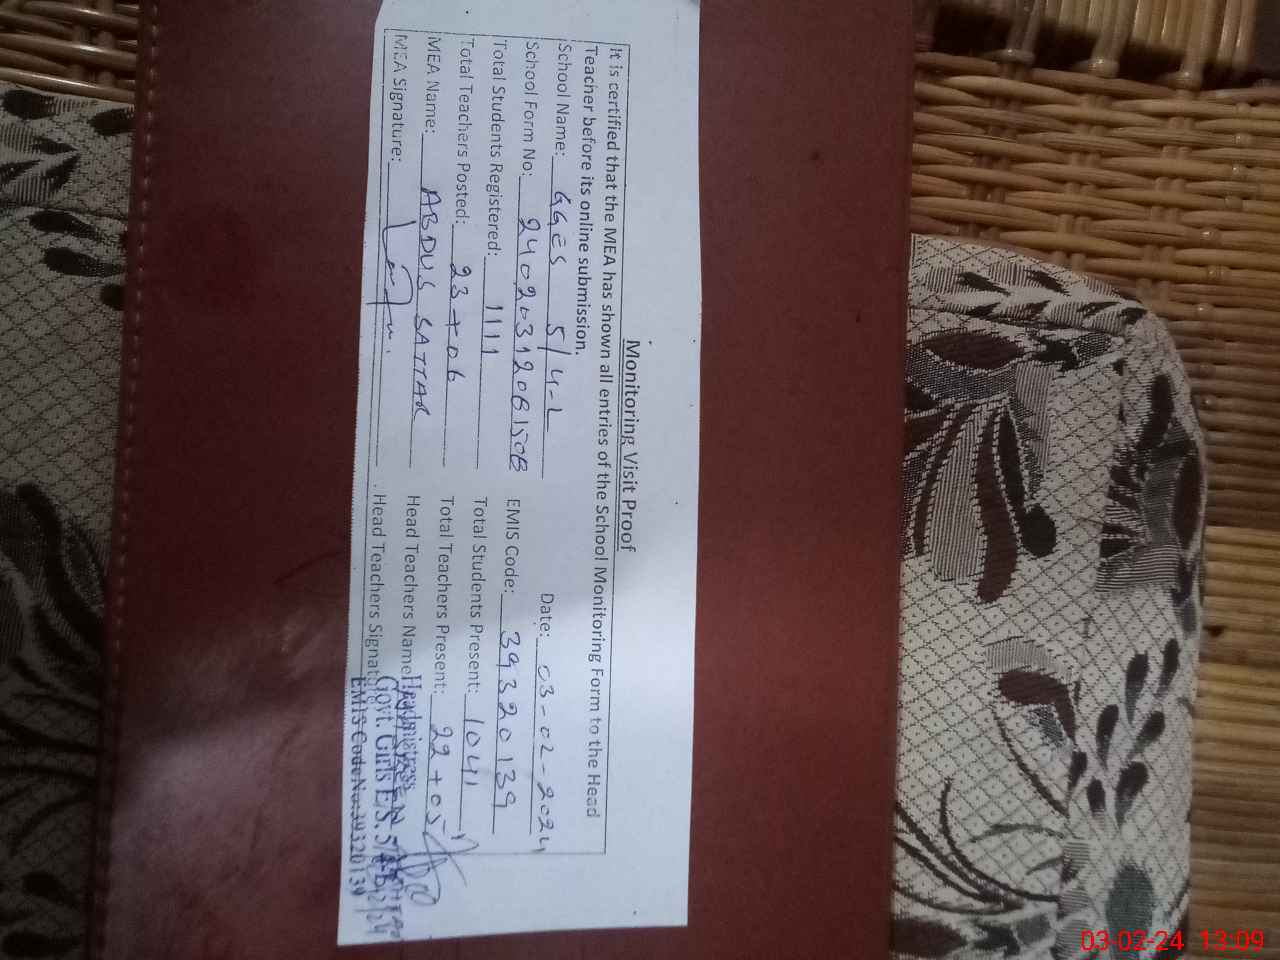 Monitoring Visit Proof
It is certified that the MEA has shown all entries of the School Monitoring Form to the Head
Teacher before its online submission.
School Name: GGES 5/4-L Date: 03-02-2024
School Form No: EMIS Code: 39320139
Total Students Registered: 1111 Total Students Present: 1041
Total Teachers Posted: 23+06 Total Teachers Present: 22+05
MEA Name: ABDUS SATTAR Head Teachers Name
MEA Signature: Head Teachers Signat
Headmistress
Govt. Girls E/S. 5/4-L
EMIS Code No: 39320139
03-02-24 13:09